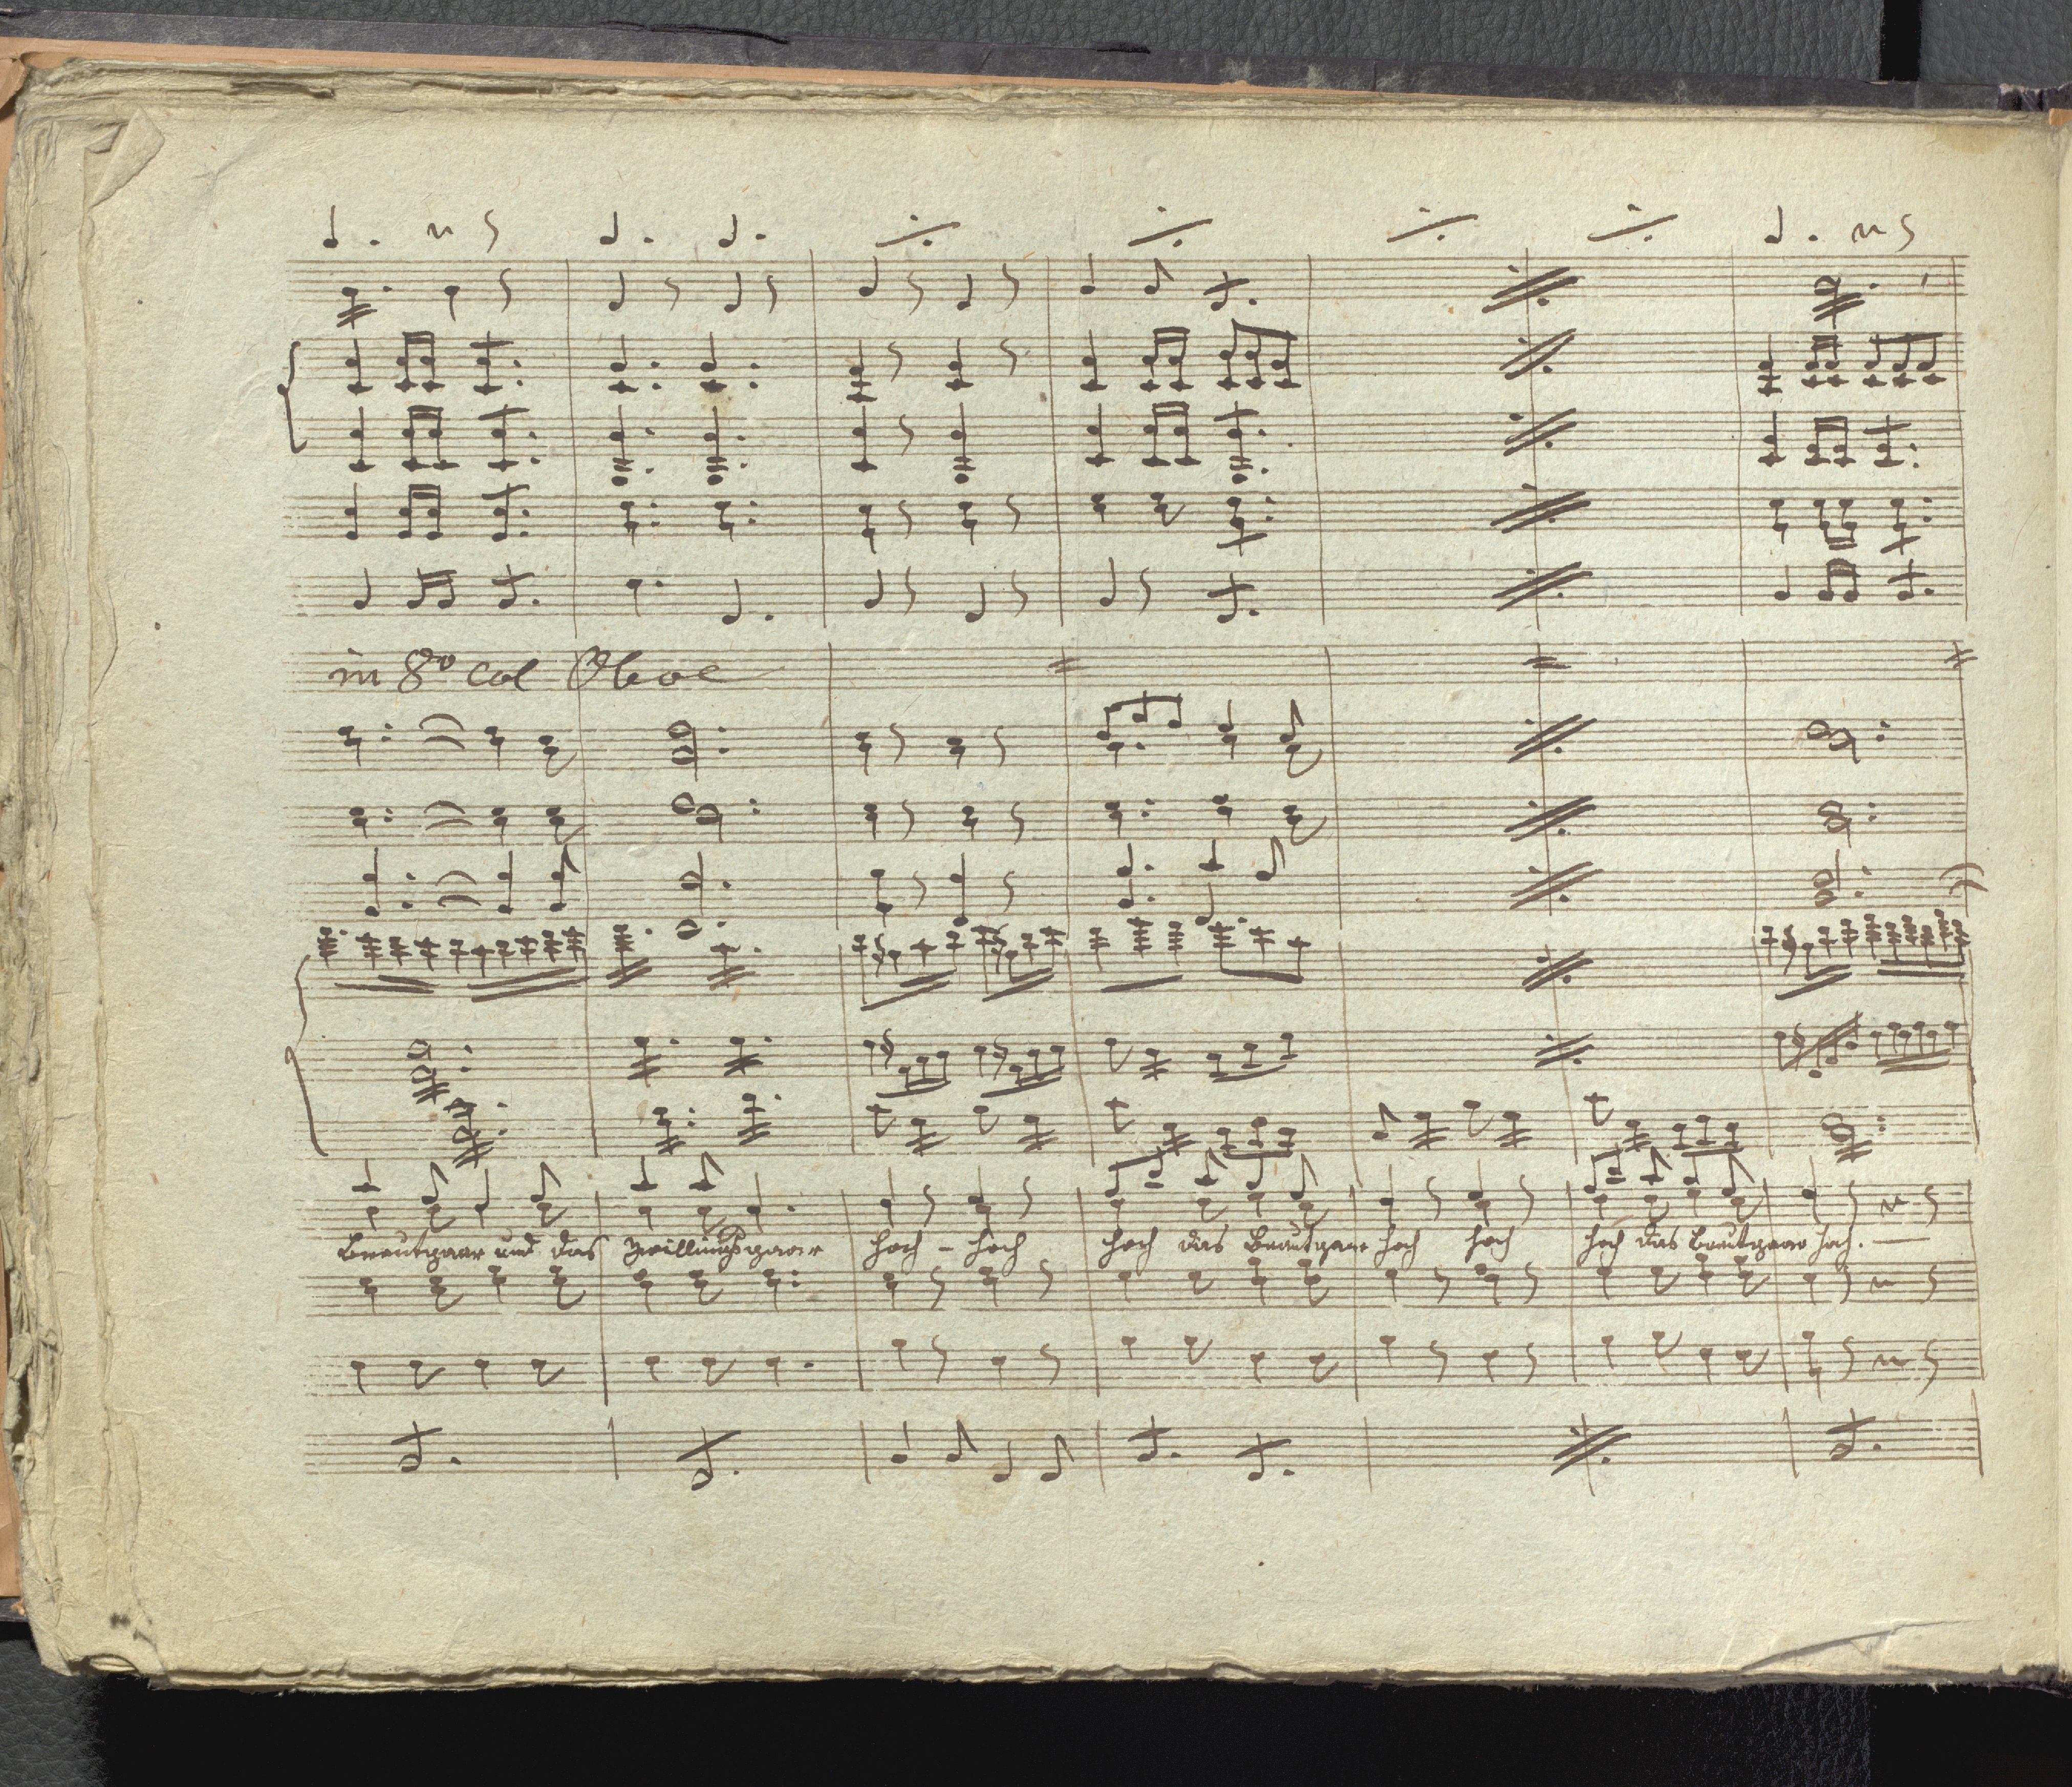 in 8vo col Oboe
Brautpaar und das Zwillingspaar hoch - hoch hoch das Brautpaar hoch hoch hoch das Brautpaar hoch.